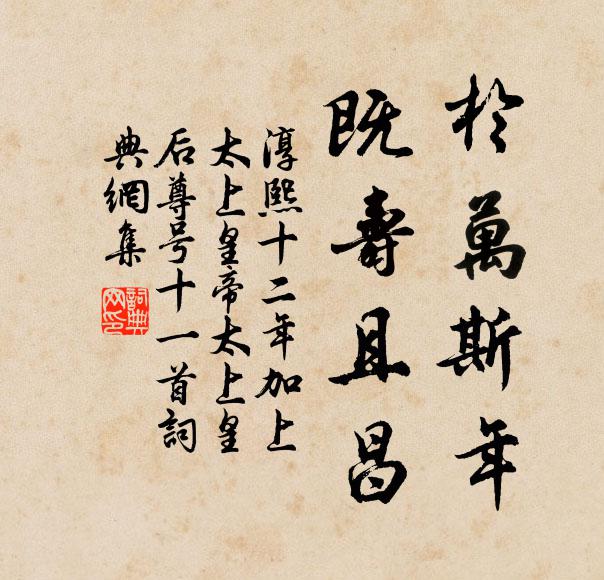 於萬斯年
既壽且昌
淳熙十二年加上
太上皇帝太上皇
后尊号十一首詞
典網集
詞典網印